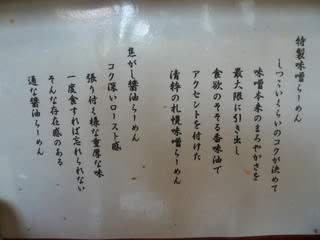 特製味噌らーめん
しつこいくらいのコクが決めて
味噌本来のまろやかさを
最大限に引き出し
食欲のそそる香味油で
アクセントを付けた
清粋の札幌味噌らーめん
焦がし醤油らーめん
コク深いロースト感
張り付く様な重厚な味
一度食すれば忘れられない
そんな存在感のある
通な醤油らーめん